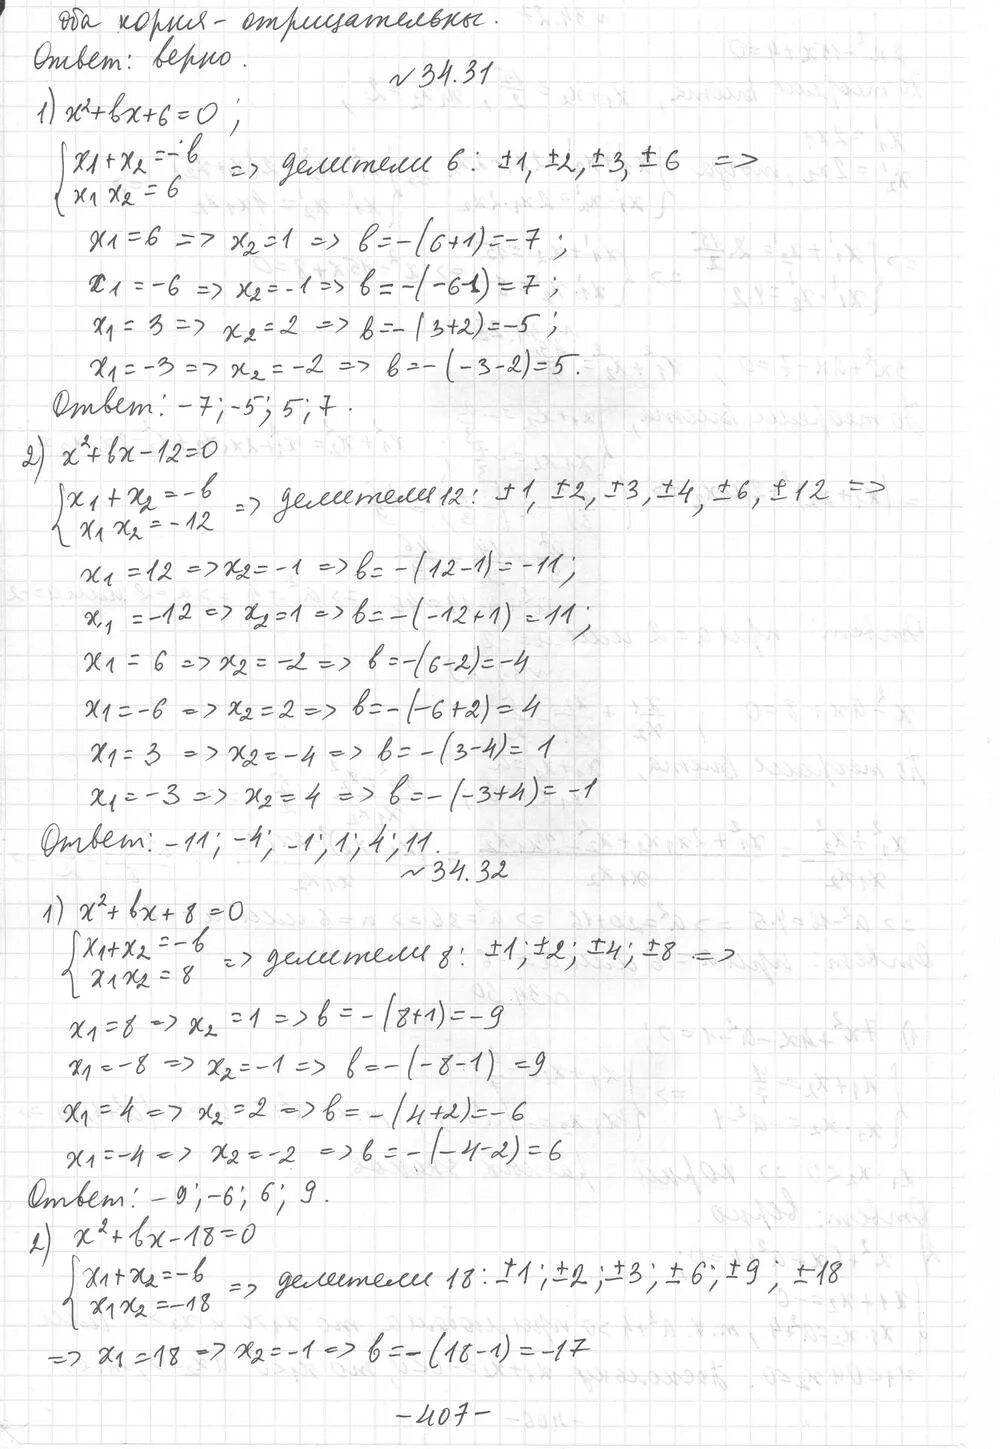 оба корня - отрицательны.
Ответ: верно.
№34.31
1) x²+bx+6=0;
{x1+x2=-b
x1x2=6 => делители 6: ±1, ±2, ±3, ±6 =>
x1=6 => x2=1 => b=-(6+1)=-7;
x1=-6 => x2=-1 => b=-(-6-1)=7;
x1=3 => x2=2 => b=-(3+2)=-5;
x1=-3 => x2=-2 => b=-(-3-2)=5.
Ответ: -7; -5; 5; 7.
2) x²+bx-12=0
{x1+x2=-b
x1x2=-12 => делители 12: ±1, ±2, ±3, ±4, ±6, ±12 =>
x1=12 => x2=-1 => b=-(12-1)=-11;
x1=-12 => x2=1 => b=-(-12+1)=11;
x1=6 => x2=-2 => b=-(6-2)=-4
x1=-6 => x2=2 => b=-(-6+2)=4
x1=3 => x2=-4 => b=-(3-4)=1
x1=-3 => x2=4 => b=-(-3+4)=-1
Ответ: -11; -4; -1; 1; 4; 11.
№34.32
1) x²+bx+8=0
{x1+x2=-b
x1x2=8 => делители 8: ±1; ±2; ±4; ±8 =>
x1=8 => x2=1 => b=-(8+1)=-9
x1=-8 => x2=-1 => b=-(-8-1)=9
x1=4 => x2=2 => b=-(4+2)=-6
x1=-4 => x2=-2 => b=-(-4-2)=6
Ответ: -9; -6; 6; 9.
2) x²+bx-18=0
{x1+x2=-b
x1x2=-18 => делители 18: ±1; ±2; ±3; ±6; ±9; ±18
=> x1=18 => x2=-1 => b=-(18-1)=-17
-407-